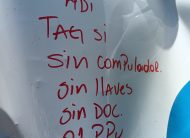 ADI
TAG si
sin computador.
sin llaves
sin DOC.
01 PPU